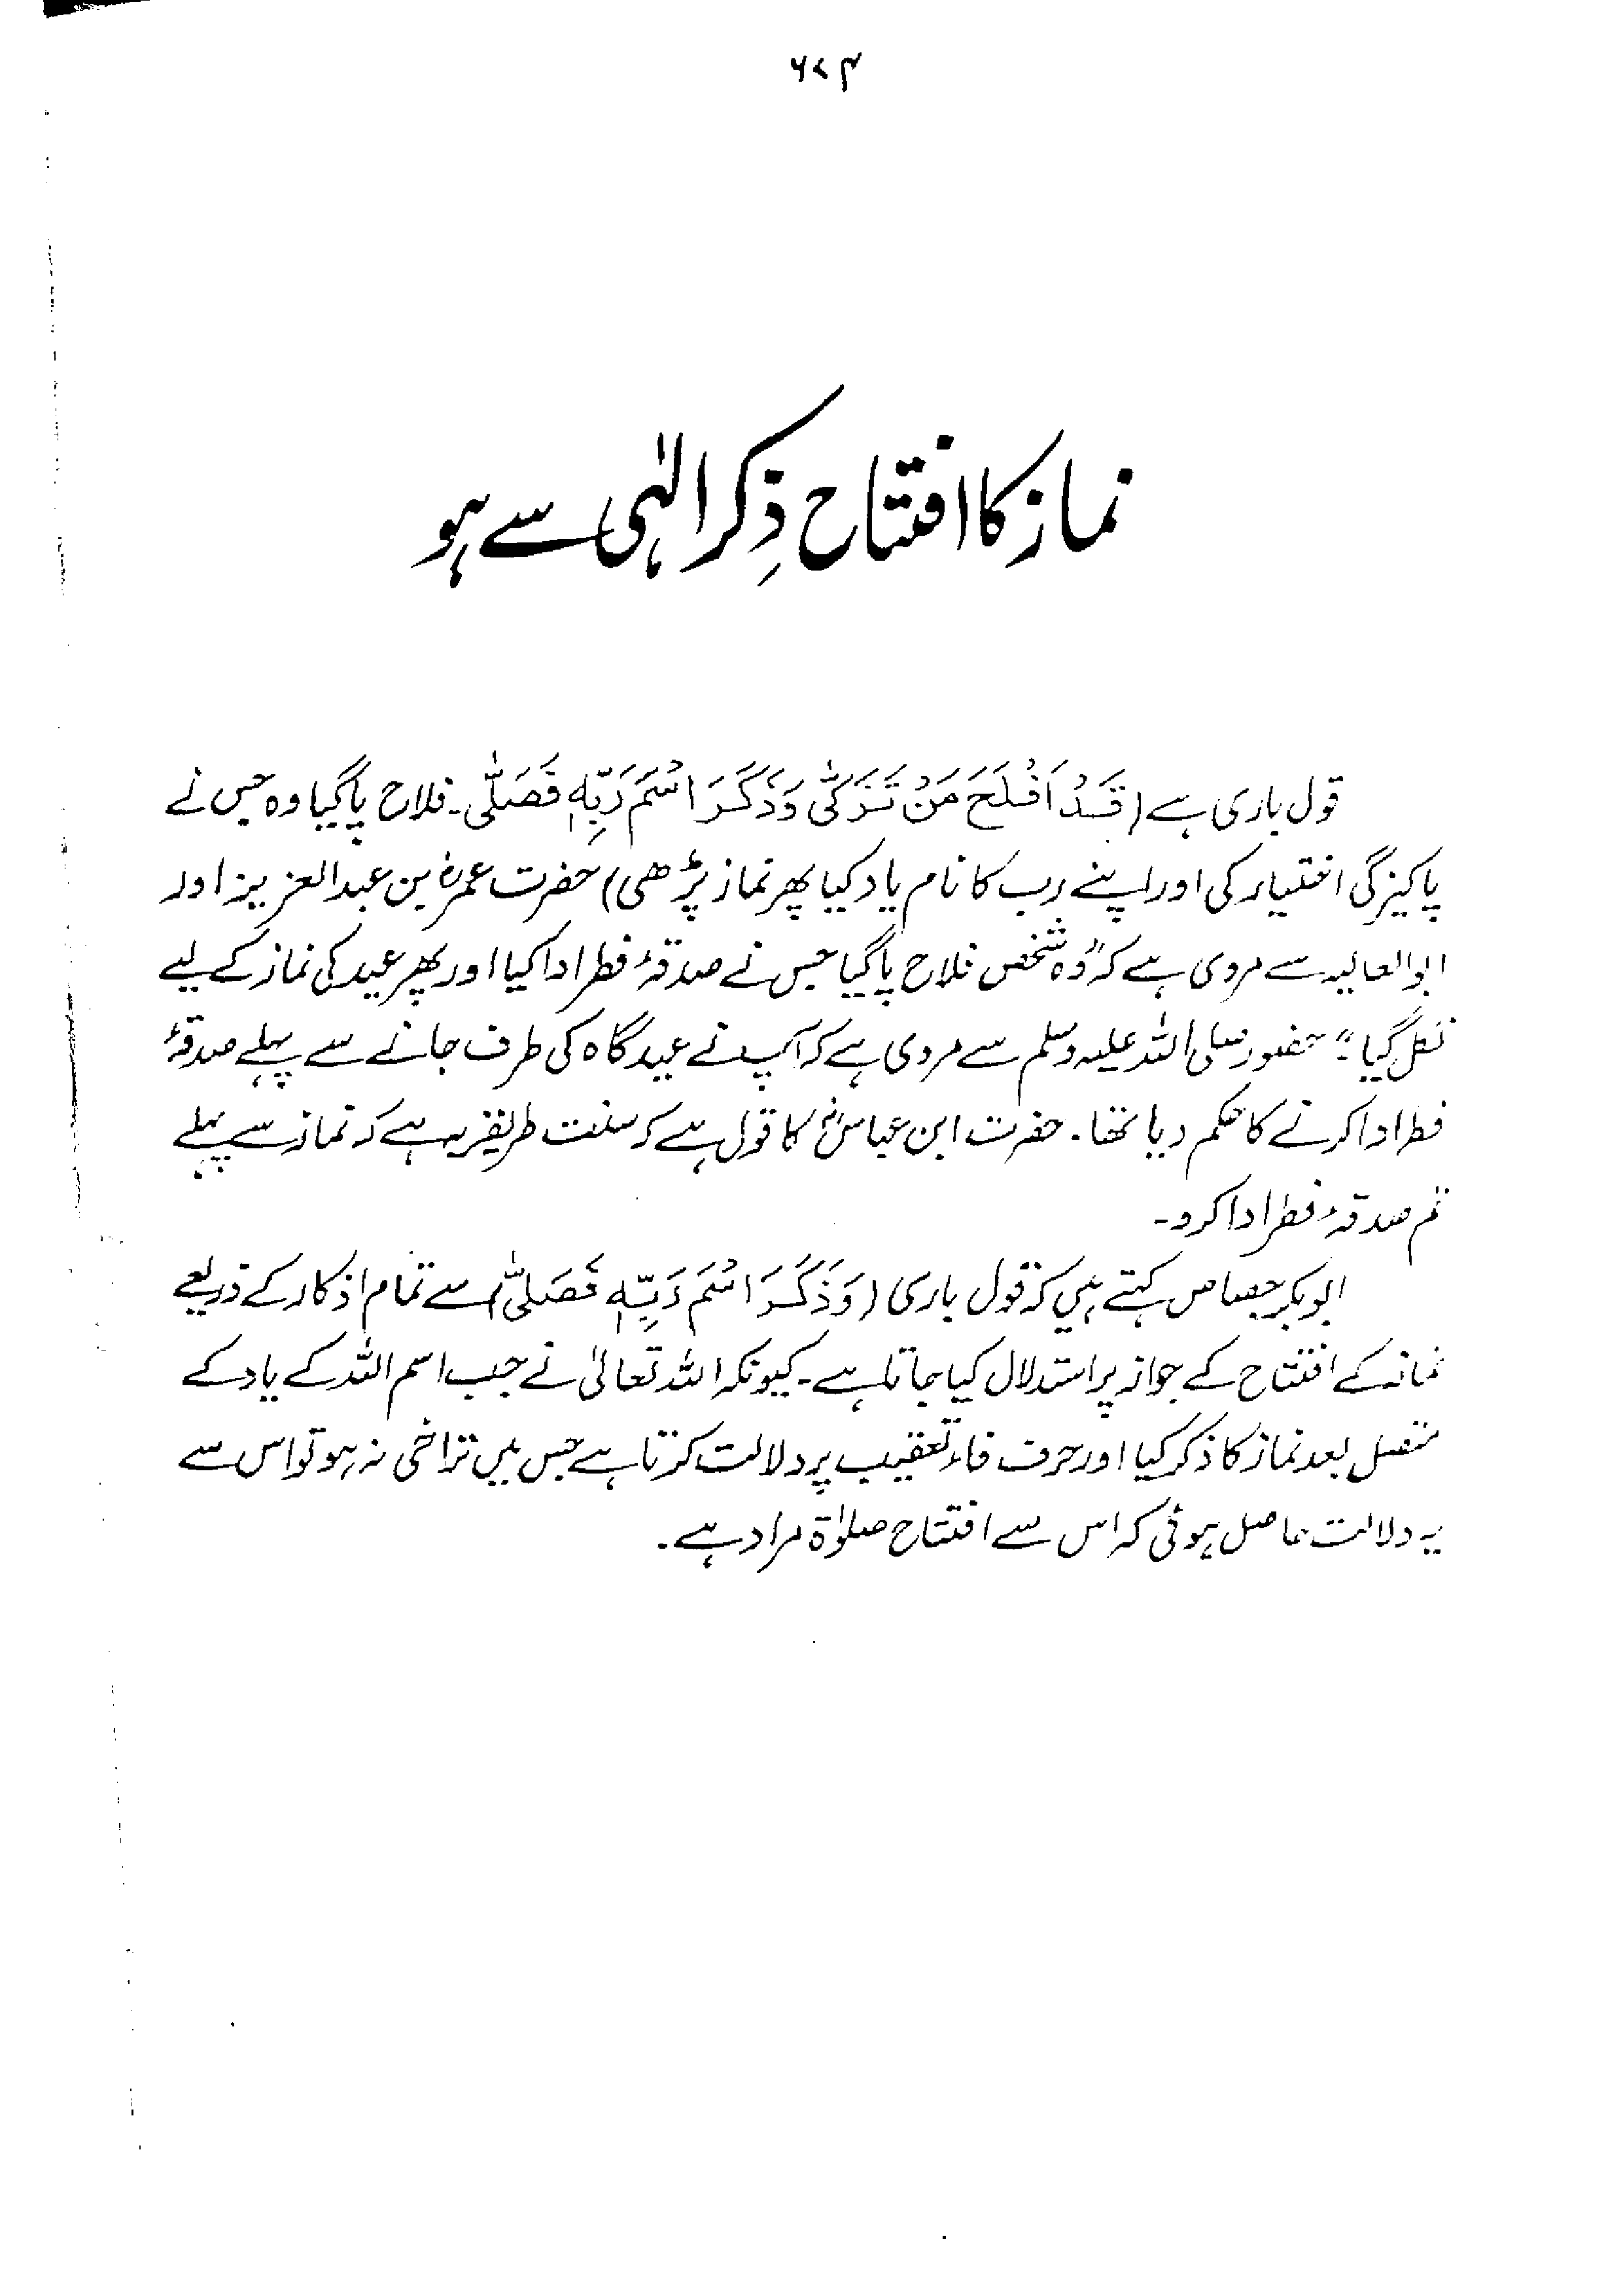 ۶۷۴
نماز کا افتتاح ذِکر الٰہی سے ہو
قول باری ہے (قَدْ اَفْلَحَ مَنْ تَزَكّٰى وَذَكَرَ اسْمَ رَبِّهٖ فَصَلّٰى۔ فلاح پا گیا وہ جس نے
پاکیزگی اختیار کی اور اپنے رب کا نام یاد کیا پھر نماز پڑھی) حضرت عمرؒ بن عبدالعزیز اور
ابوالعالیہ سے مروی ہے کہ "وہ شخص فلاح پا گیا جس نے صدقۂ فطر ادا کیا اور پھر عید کی نماز کے لیے
نکل گیا"۔ حضور صلی اللہ علیہ وسلم سے مروی ہے کہ آپ نے عیدگاہ کی طرف جانے سے پہلے صدقۂ
فطر ادا کرنے کا حکم دیا تھا۔ حضرت ابن عباسؓ کا قول ہے کہ سنت طریقہ یہ ہے کہ نماز سے پہلے
تم صدقۂ فطر ادا کرو۔
ابوبکر جصاص کہتے ہیں کہ قول باری (وَذَكَرَ اسْمَ رَبِّهٖ فَصَلّٰى) سے تمام اذکار کے ذریعے
نماز کے افتتاح کے جواز پر استدلال کیا جاتا ہے۔ کیونکہ اللہ تعالیٰ نے جب اسم اللہ کے یاد کے
متصل بعد نماز کا ذکر کیا اور حرف فاء تعقیب پر دلالت کرتا ہے جس میں تراخی نہ ہو تو اس سے
یہ دلالت حاصل ہوئی کہ اس سے افتتاح صلوٰۃ مراد ہے۔